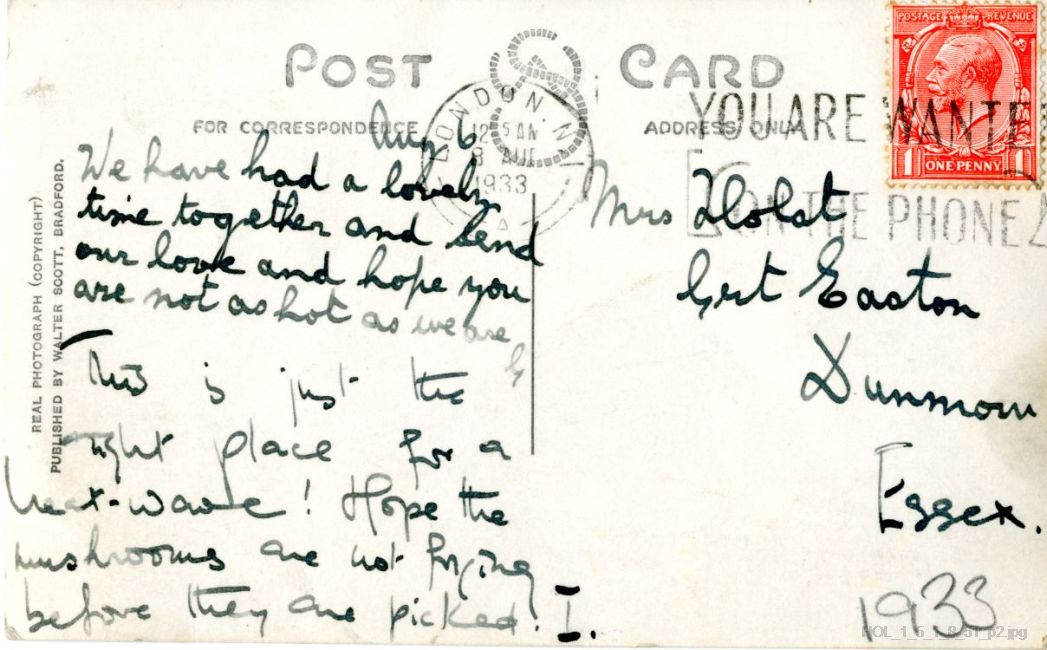 POST CARD
FOR CORRESPONDENCE
ADDRESS ONLY
REAL PHOTOGRAPH (COPYRIGHT)
PUBLISHED BY WALTER SCOTT, BRADFORD.
Aug 6
We have had a lovely
time together and send
our love and hope you
are not as hot as we are
G
This is just the
right place for a
heat-wave! Hope the
mushrooms are not frying
before they are picked! I.
LONDON. N.1
12 15 AM
8 AUG
1933
A
POSTAGE REVENUE
1 ONE PENNY 1
YOU ARE WANTE
ON THE PHONE
Mrs Holst
Grt Easton
Dunmow
Essex.
1933
HOL_1_5_1_8_51_p2.jpg